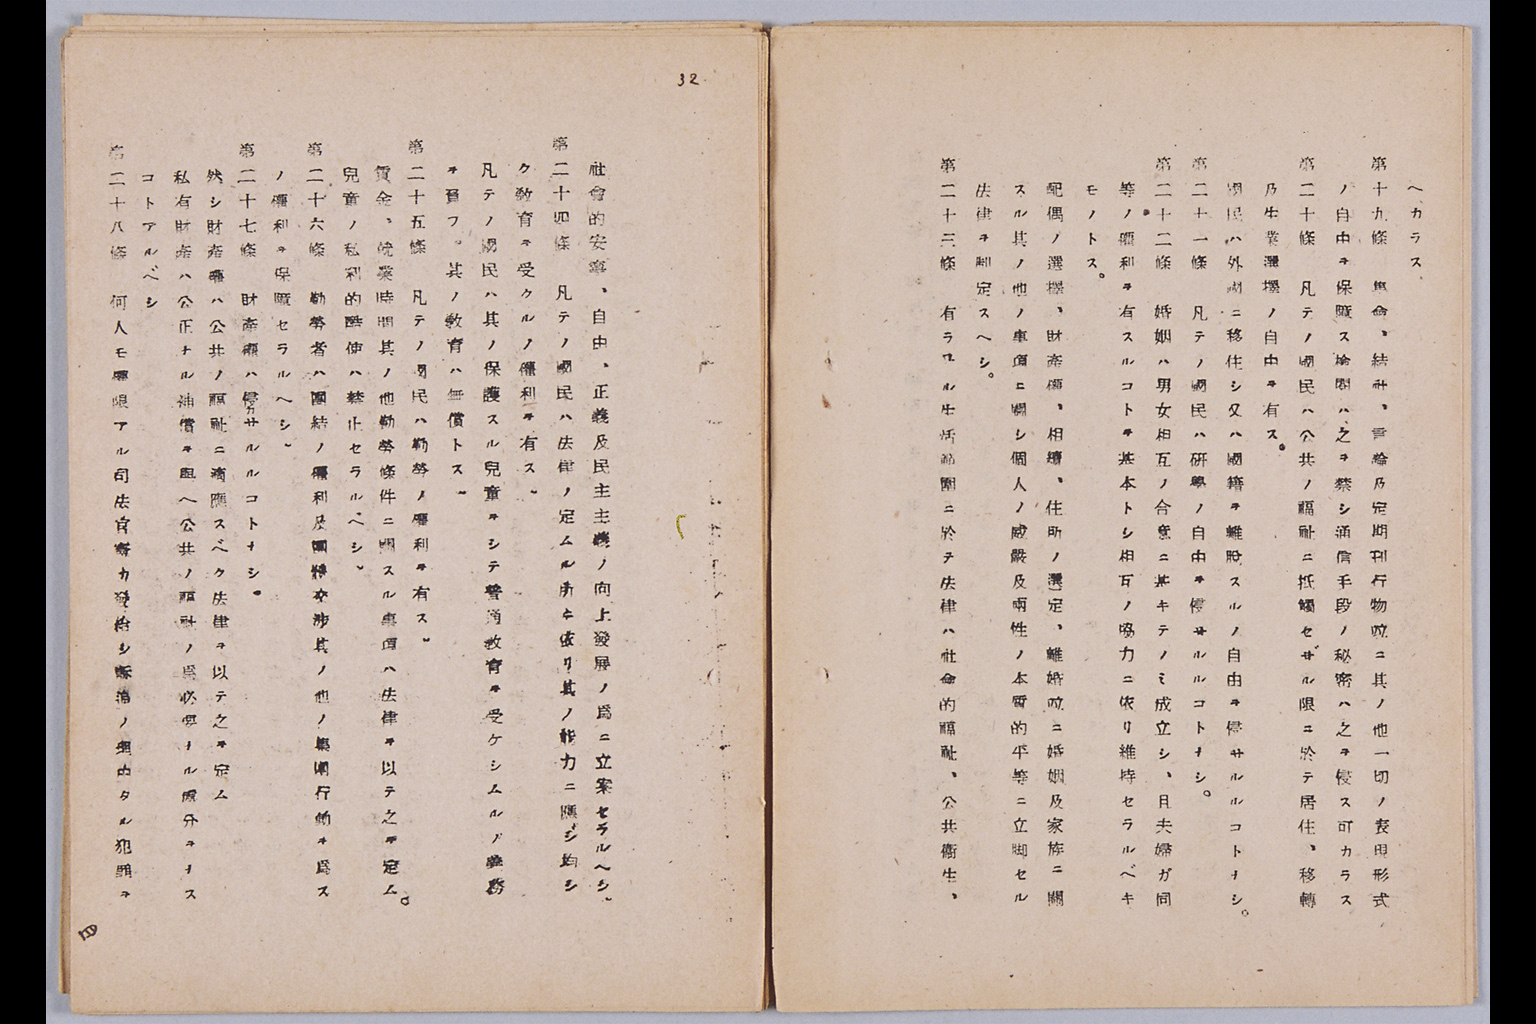 ヘカラス
第十九條 集會、結社、言論及定期刊行物竝ニ其ノ他一切ノ表現形式
ノ自由ヲ保障ス檢閲ハ之ヲ禁シ通信手段ノ秘密ハ之ヲ侵ス可カラス
第二十條 凡テノ國民ハ公共ノ福祉ニ抵觸セザル限ニ於テ居住、移轉
及生業選擇ノ自由ヲ有ス。
國民ハ外國ニ移住シ又ハ國籍ヲ離脱スルノ自由ヲ侵サルルコトナシ。
第二十一條 凡テノ國民ハ研學ノ自由ヲ侵サルルコトナシ。
第二十二條 婚姻ハ男女相互ノ合意ニ基キテノミ成立シ、且夫婦ガ同
等ノ權利ヲ有スルコトヲ基本トシ相互ノ協力ニ依リ維持セラルベキ
モノトス。
配偶ノ選擇、財産權、相續、住所ノ選定、離婚竝ニ婚姻及家族ニ關
スル其ノ他ノ事項ニ關シ個人ノ威嚴及兩性ノ本質的平等ニ立脚セル
法律ヲ制定スヘシ。
第二十三條 有ラユル生活範圍ニ於テ法律ハ社會的福祉、公共衞生、
32
社會的安寧、自由、正義及民主主義ノ向上發展ノ爲ニ立案セラルヘシ
第二十四條 凡テノ國民ハ法律ノ定ムル所ニ依リ其ノ能力ニ應ジ均シ
ク敎育ヲ受クルノ權利ヲ有ス
凡テノ國民ハ其ノ保護スル兒童ヲシテ普通敎育ヲ受ケシムルノ義務
ヲ負フ。其ノ敎育ハ無償トス
第二十五條 凡テノ國民ハ勤勞ノ權利ヲ有ス
賃金、就業時間其ノ他勤勞條件ニ關スル事項ハ法律ヲ以テ之ヲ定ム。
兒童ノ私利的酷使ハ禁止セラルベシ
第二十六條 勤勞者ハ團結ノ權利及團體交渉其ノ他ノ集團行動ヲ爲ス
ノ權利ヲ保障セラルヘシ
第二十七條 財產權ハ侵カサルルコトナシ。
然シ財產權ハ公共ノ福祉ニ適應スベク法律ヲ以テ之ヲ定ム
私有財產ハ公正ナル補償ヲ與ヘ公共ノ福祉ノ爲必要ナル處分ヲナス
コトアルベシ
第二十八條 何人モ權限アル司法官憲カ發給シ訴追ノ理由タル犯罪ヲ